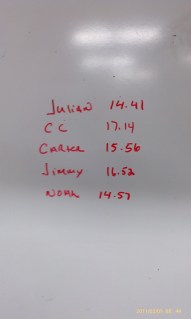 Julian 14.41
CC 17.14
Carlee 15.56
Jimmy 16.52
Noah 14.57